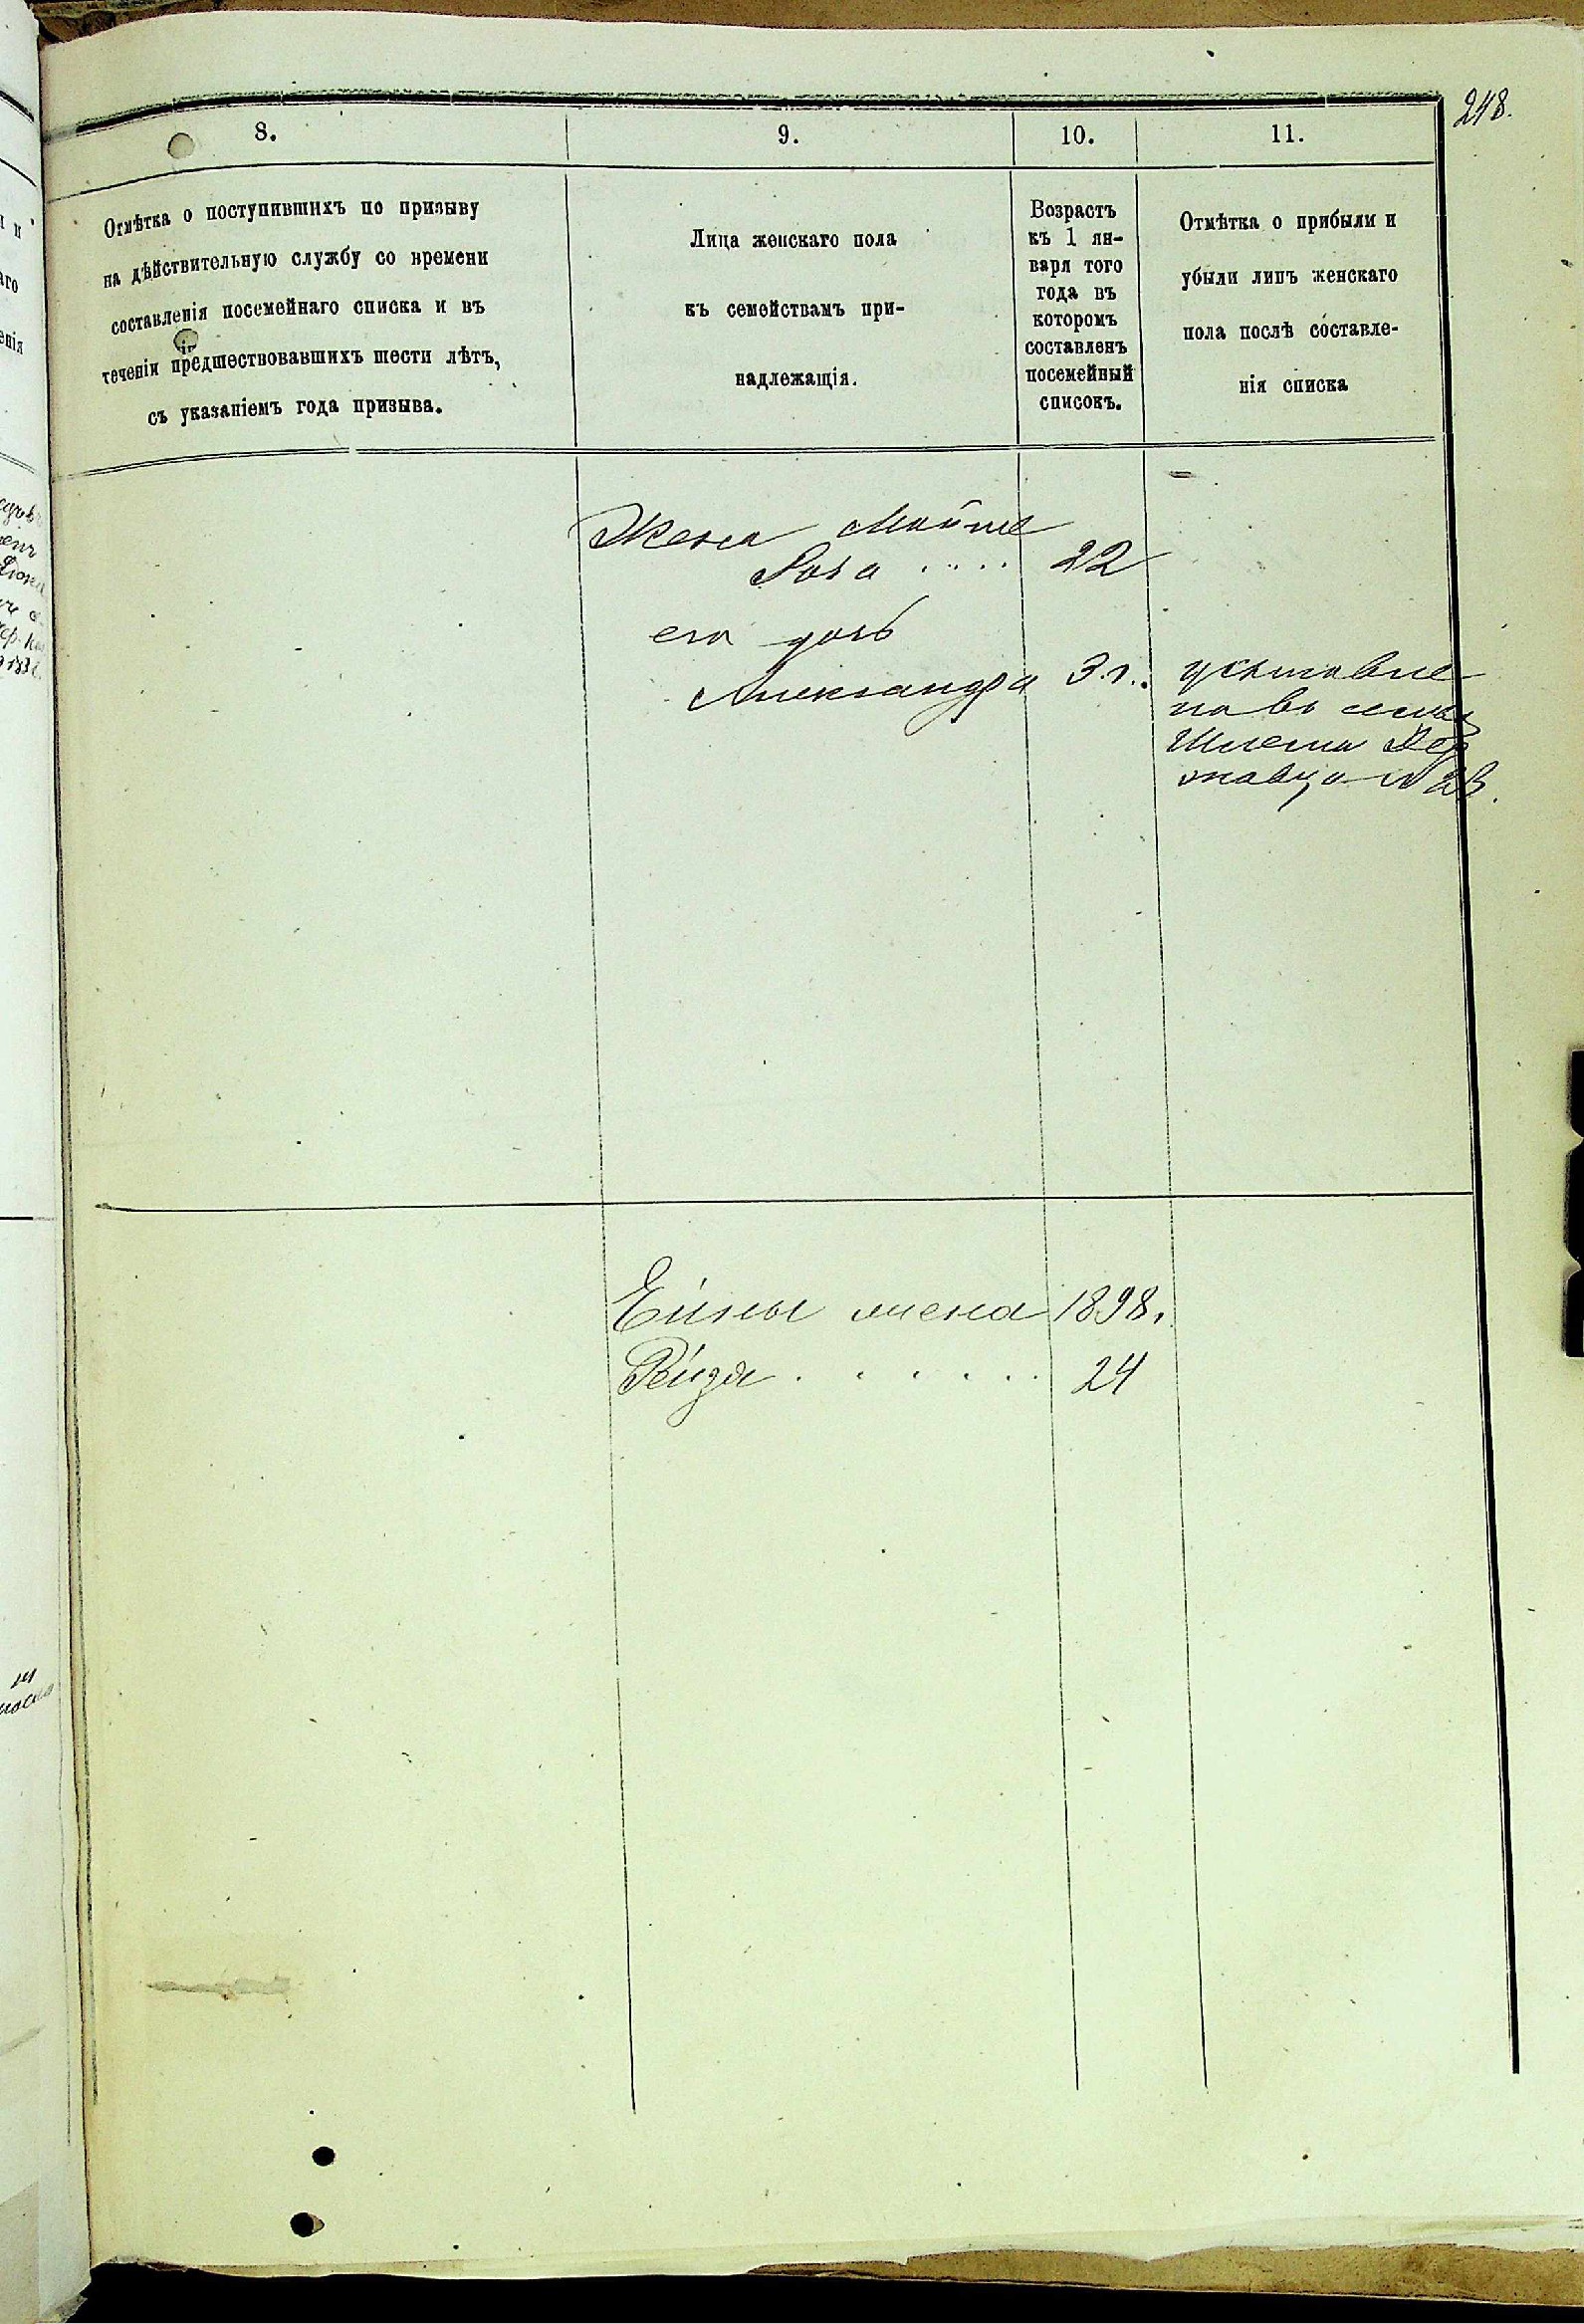 248.
8.
9.
10.
11.
Отмѣтка о поступившихъ по призыву
на дѣйствительную службу со времени
составленія посемейнаго списка и въ
теченіи предшествовавшихъ шести лѣтъ,
съ указаніемъ года призыва.
Лица женскаго пола
къ семействамъ при-
надлежащія.
Возрастъ
къ 1 ян-
варя того
года въ
которомъ
составленъ
посемейный
списокъ.
Отмѣтка о прибыли и
убыли лицъ женскаго
пола послѣ составле-
нія списка
Жена
Роза .... 22
его дочь
Александра 3 г.
на въ семью
Шлема Дер
жавца № 23.
жена 1898.
Рейзя . . . . . . 24